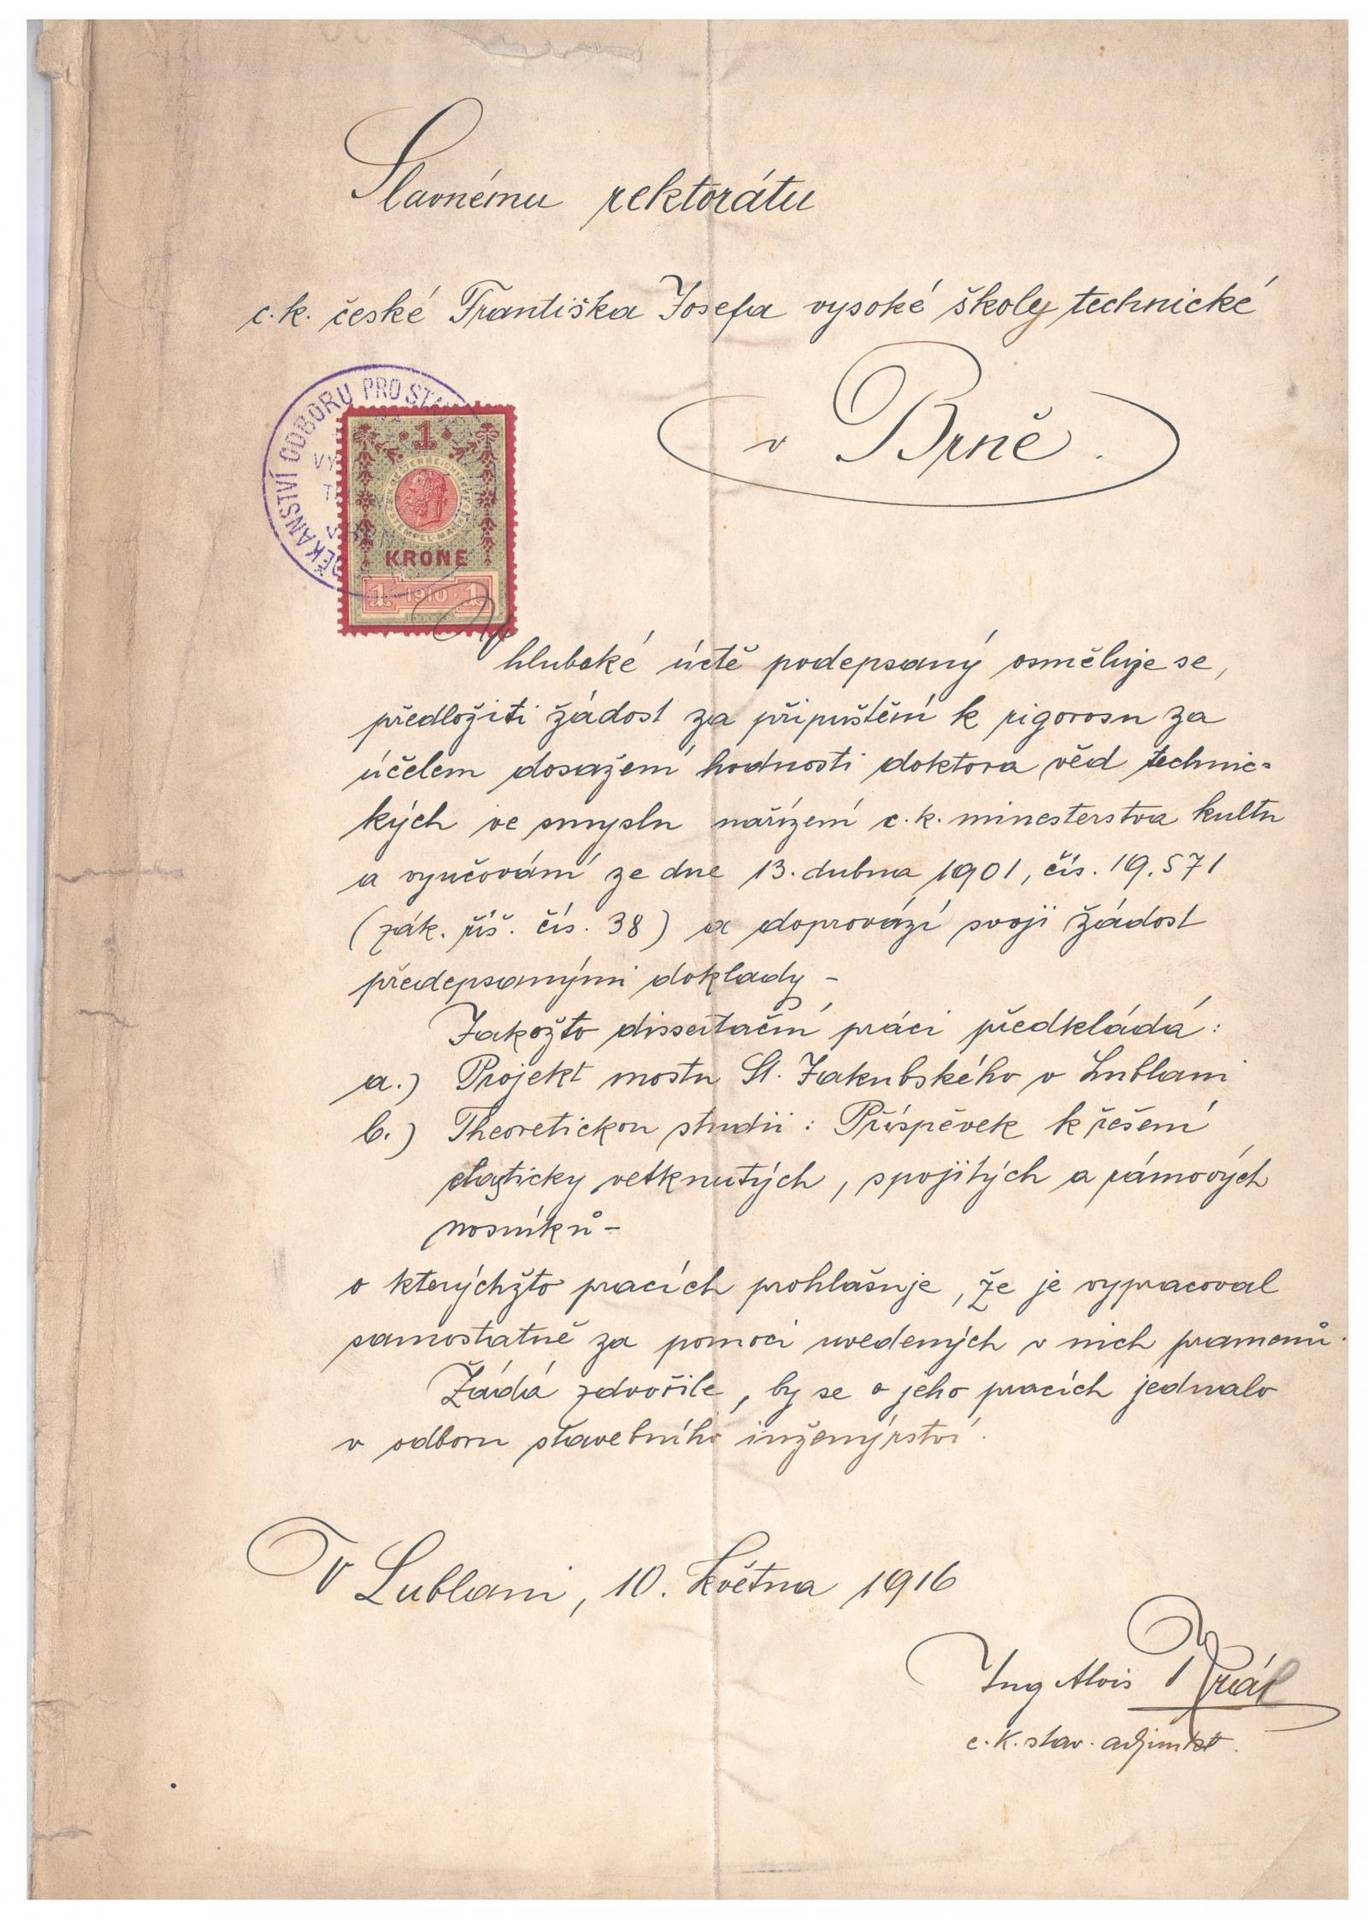 Slavnému rektorátu
c. k. české Františka Josefa vysoké školy technické
v Brně.
DĚKANSTVÍ ODBORU PRO
1
KRONE
1 1910 1
V hluboké úctě podepsaný osměluje se,
předložiti žádost za připuštění k rigorosu za
účelem dosažení hodnosti doktora věd technic=
kých ve smyslu nařízení c. k. minesterstva kultu
a vyučování ze dne 13. dubna 1901, čís. 19.571
(zák. říš. čís. 38) a doprovází svoji žádost
předepsanými doklady –
Jakožto dissertační práci předkládá:
a.) Projekt mostu St. Jakubského v Lublani
b.) Theoretickou studii: Příspěvek k řešení
elasticky vetknutých, spojitých a rámových
nosníků –
o kterýchžto pracích prohlašuje, že je vypracoval
samostatně za pomoci uvedených v nich pramenů.
Žádá zdvořile, by se o jeho pracích jednalo
v odboru stavebního inženýrství.
V Lublani, 10. května 1916
Ing Alois Král
c. k. stav. adjunkt.